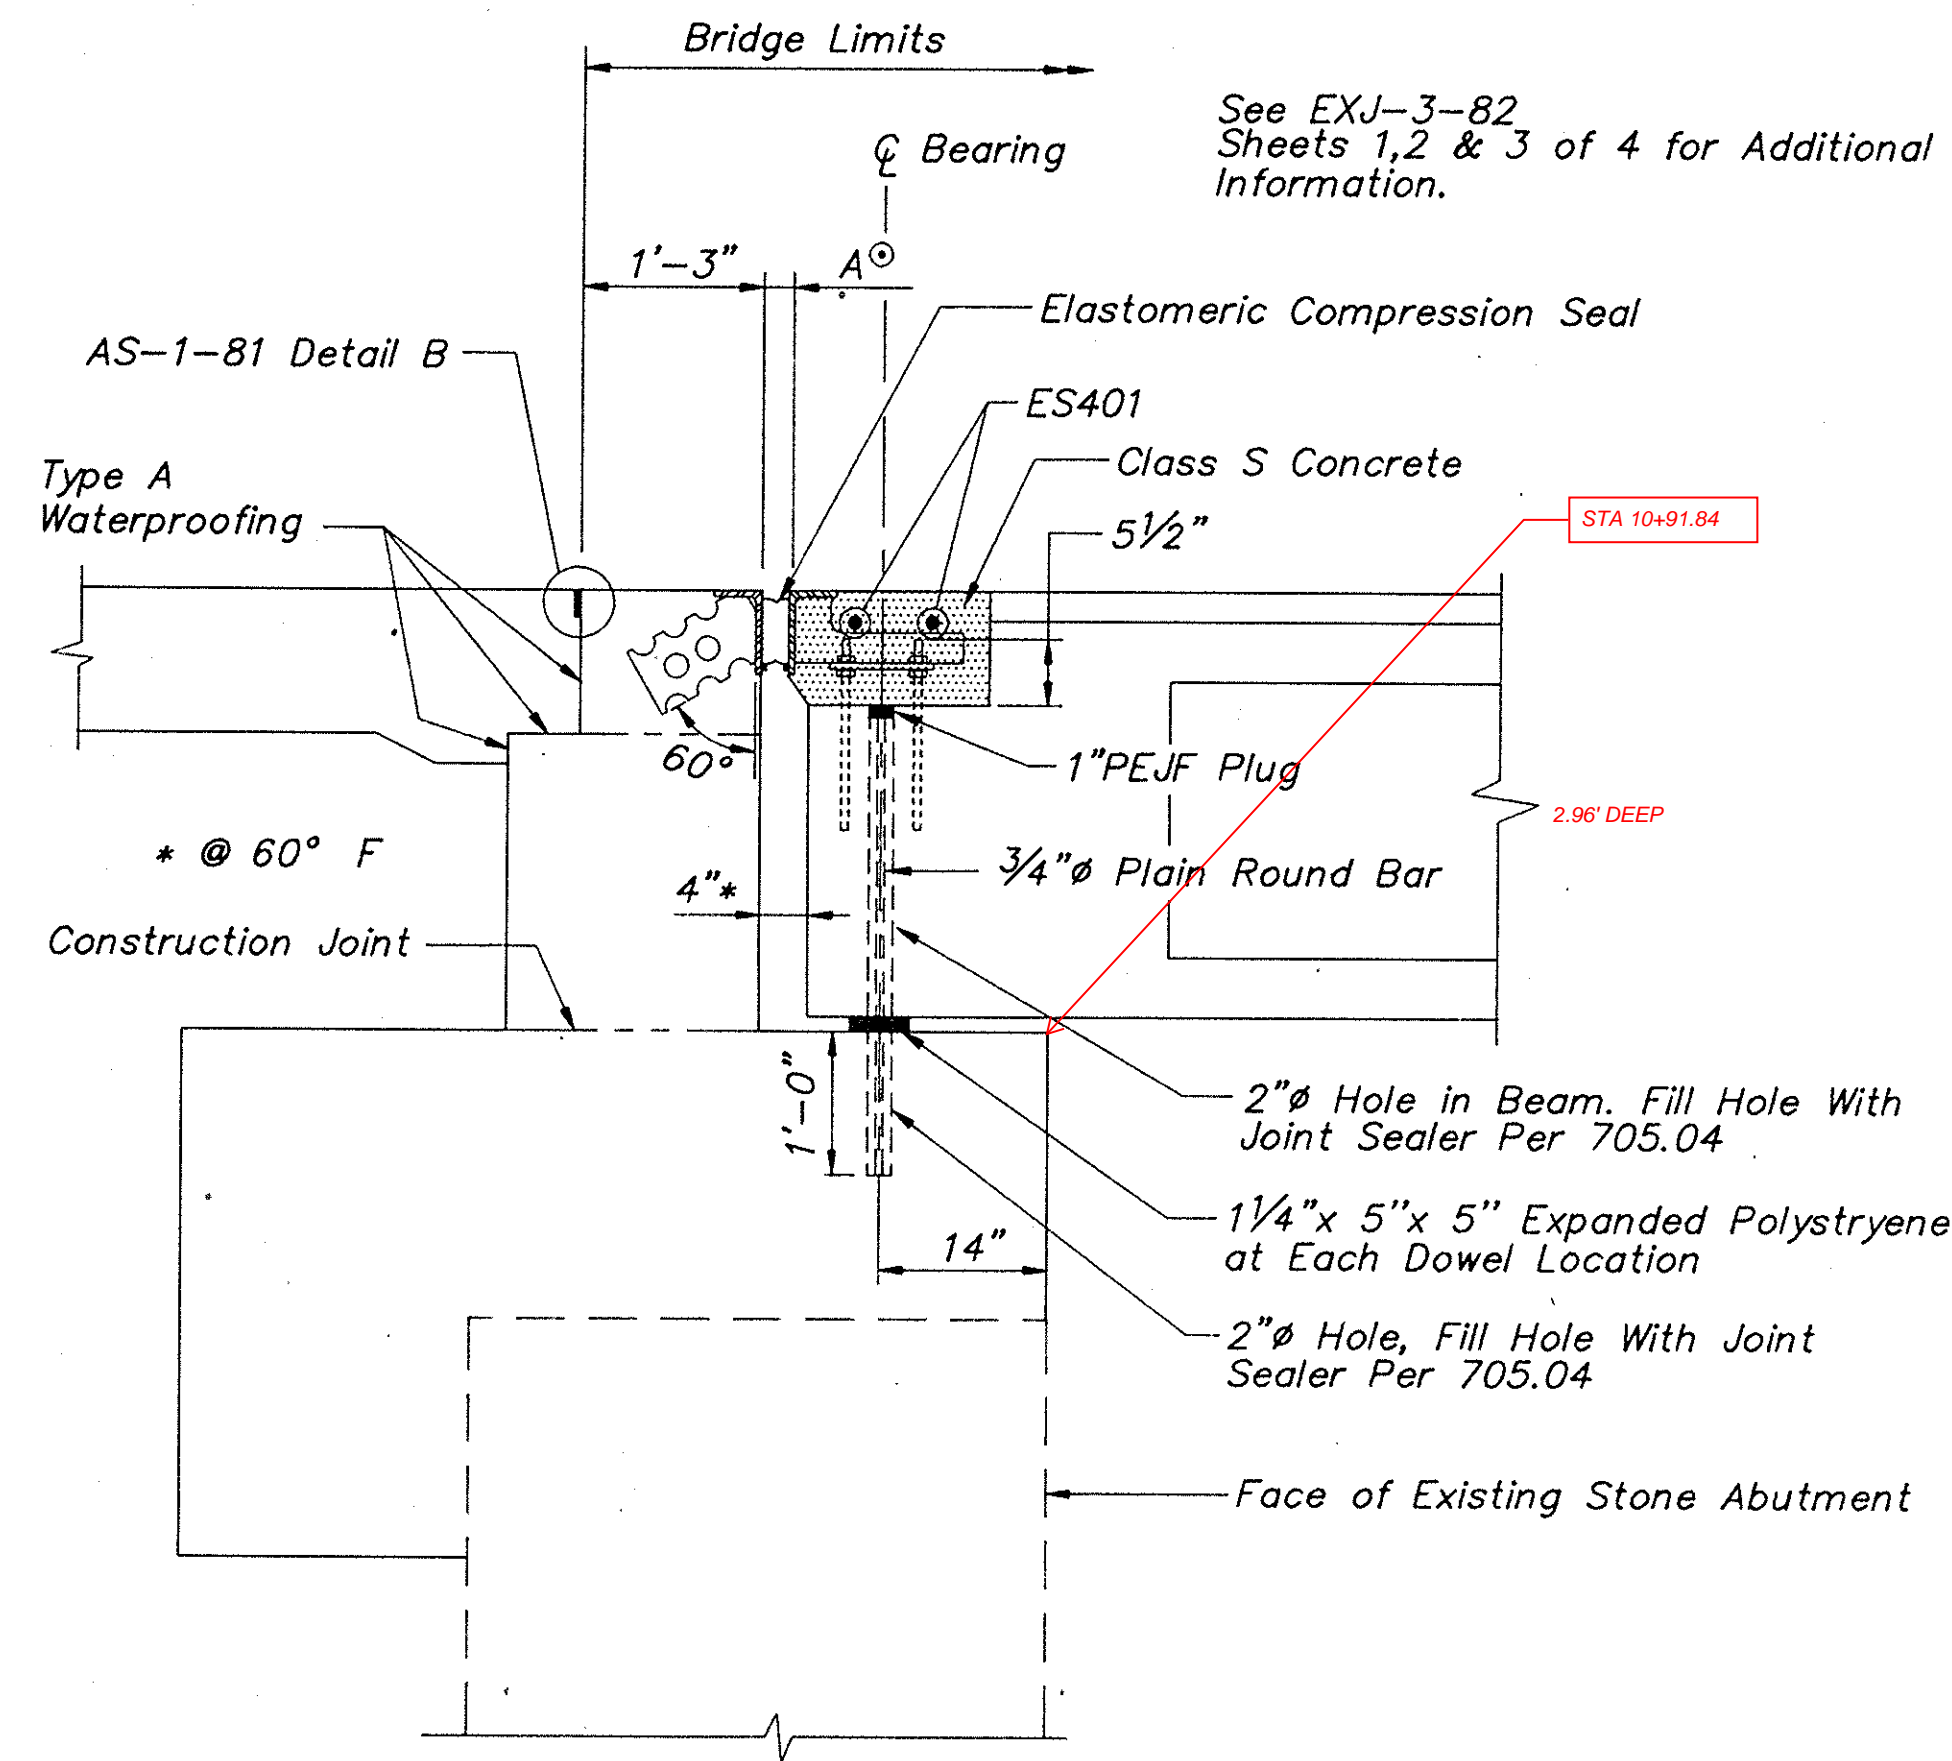 Bridge Limits
See EXJ-3-82
Sheets 1,2 & 3 of 4 for Additional
Information.
℄ Bearing
1'-3"
A
Elastomeric Compression Seal
AS-1-81 Detail B
ES401
Class S Concrete
Type A
Waterproofing
5½"
STA 10+91.84
60°
1"PEJF Plug
2.96' DEEP
* @ 60° F
4"*
¾"ø Plain Round Bar
Construction Joint
1'-0"
2"ø Hole in Beam. Fill Hole With
Joint Sealer Per 705.04
1¼"x 5"x 5" Expanded Polystryene
at Each Dowel Location
14"
2"ø Hole, Fill Hole With Joint
Sealer Per 705.04
Face of Existing Stone Abutment